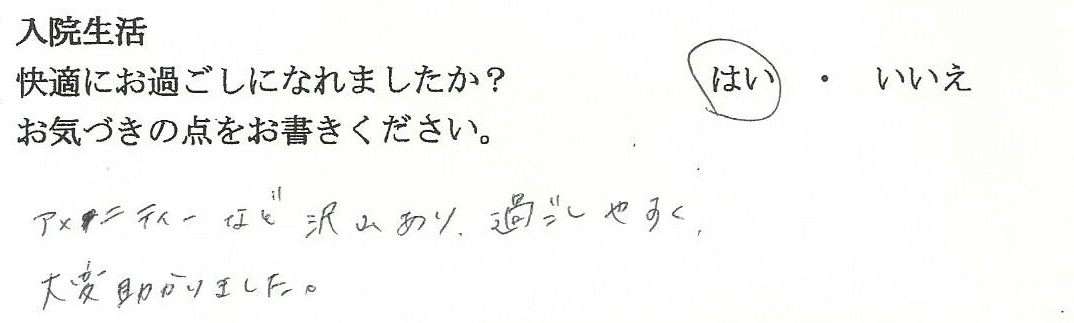 入院生活
快適にお過ごしになれましたか？ はい ・ いいえ
お気づきの点をお書きください。
アメニティーなど沢山あり、過ごしやすく、
大変助かりました。